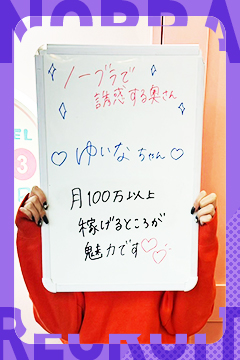 NOBRA
ノーブラで
誘惑する奥さん
♡ゆいなちゃん♡
月100万以上
稼げるところが
魅力です♡♡
RECRUIT